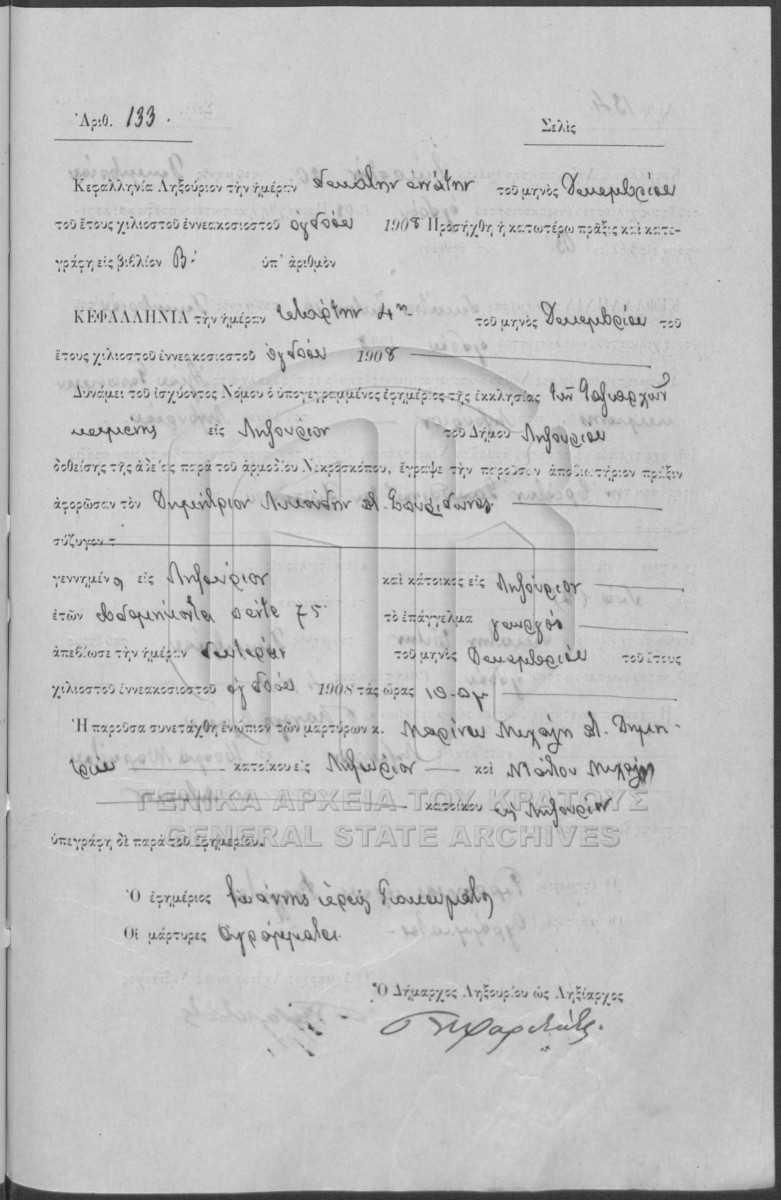 Ἀριθ. 133.
Σελὶς
Κεφαλληνία Ληξούριον τὴν ἡμέραν δεκάτην ἐνάτην τοῦ μηνὸς Δεκεμβρίου
τοῦ ἔτους χιλιοστοῦ ἐννεακοσιοστοῦ ὀγδόου 1908 Προσήχθη ἡ κατωτέρω πρᾶξις καὶ κατε-
γράφη εἰς βιβλίον Β. ὑπ' ἀριθμὸν
ΚΕΦΑΛΛΗΝΙΑ τὴν ἡμέραν τετάρτην 4ην τοῦ μηνὸς Δεκεμβρίου τοῦ
ἔτους χιλιοστοῦ ἐννεακοσιοστοῦ ὀγδόου 1908
Δυνάμει τοῦ ἰσχύοντος Νόμου ὁ ὑπογεγραμμένος ἐφημέριος τῆς ἐκκλησίας τῶν Ταξιαρχῶν
κειμένης εἰς Ληξούριον τοῦ Δήμου Ληξουρίου
δοθείσης τῆς ἀδείας παρὰ τοῦ ἁρμοδίου Νεκροσκόπου, ἔγραψε τὴν παροῦσαν ἀποβιωτήριον πρᾶξιν
ἀφορῶσαν τὸν Δημήτριον
σύζυγον τ
γεννημένο εἰς Ληξούριον καὶ κάτοικος εἰς Ληξούριον
ἐτῶν ἑβδομήκοντα πέντε 75 τὸ ἐπάγγελμα γεωργός
ἀπεβίωσε τὴν ἡμέραν δευτέραν τοῦ μηνὸς Δεκεμβρίου τοῦ ἔτους
χιλιοστοῦ ἐννεακοσιοστοῦ ὀγδόου 1908 τὰς ὥρας 10 π.μ.
Ἡ παροῦσα συνετάχθη ἐνώπιον τῶν μαρτύρων κ. Μαρίνου Μιχάλη Δημη-
τρίου κατοίκου εἰς Ληξούριον καὶ Μιχάλη
κατοίκου εἰς Ληξούριον
ΓΕΝΙΚΑ ΑΡΧΕΙΑ ΤΟΥ ΚΡΑΤΟΥΣ
GENERAL STATE ARCHIVES
ὑπεγράφη δὲ παρὰ τοῦ ἐφημερίου.
Ὁ ἐφημέριος Ἰωάννης ἱερεὺς
Οἱ μάρτυρες ἀγράμματοι
Ὁ Δήμαρχος Ληξουρίου ὡς Ληξίαρχος